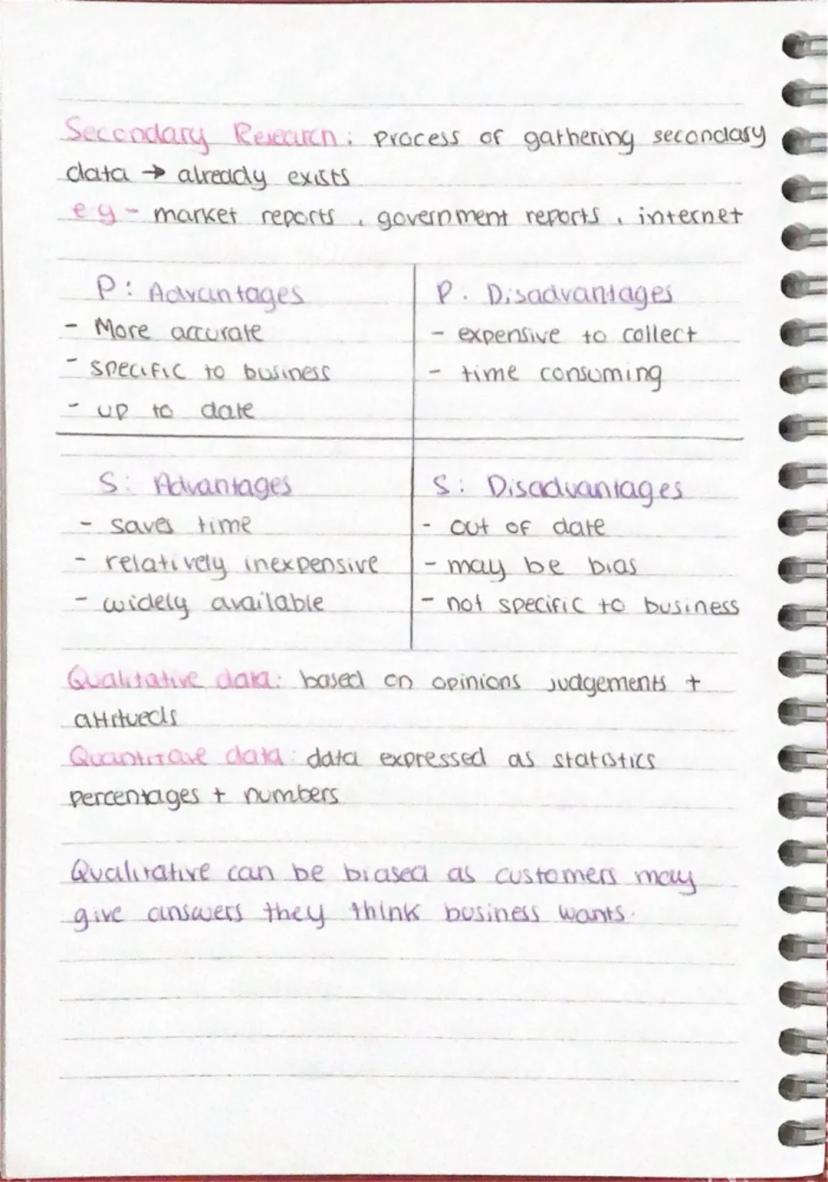 Secondary Research: process of gathering secondary
data → already exists
eg - market reports, government reports, internet
P: Advantages
- More accurate
- specific to business
- up to date
P. Disadvantages
- expensive to collect
- time consuming
S: Advantages
- saves time
- relatively inexpensive
- widely available
S: Disadvantages
- out of date
- may be bias
- not specific to business
Qualitative data: based on opinions judgements +
attitueds
Quantitave data: data expressed as statistics
percentages + numbers
Qualitative can be biased as customers may
give answers they think business wants.